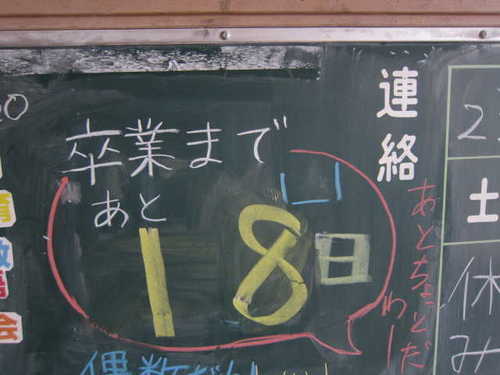 連絡
卒業まで
あと
18日
あとちょっとだ
わー
土
休
み
会